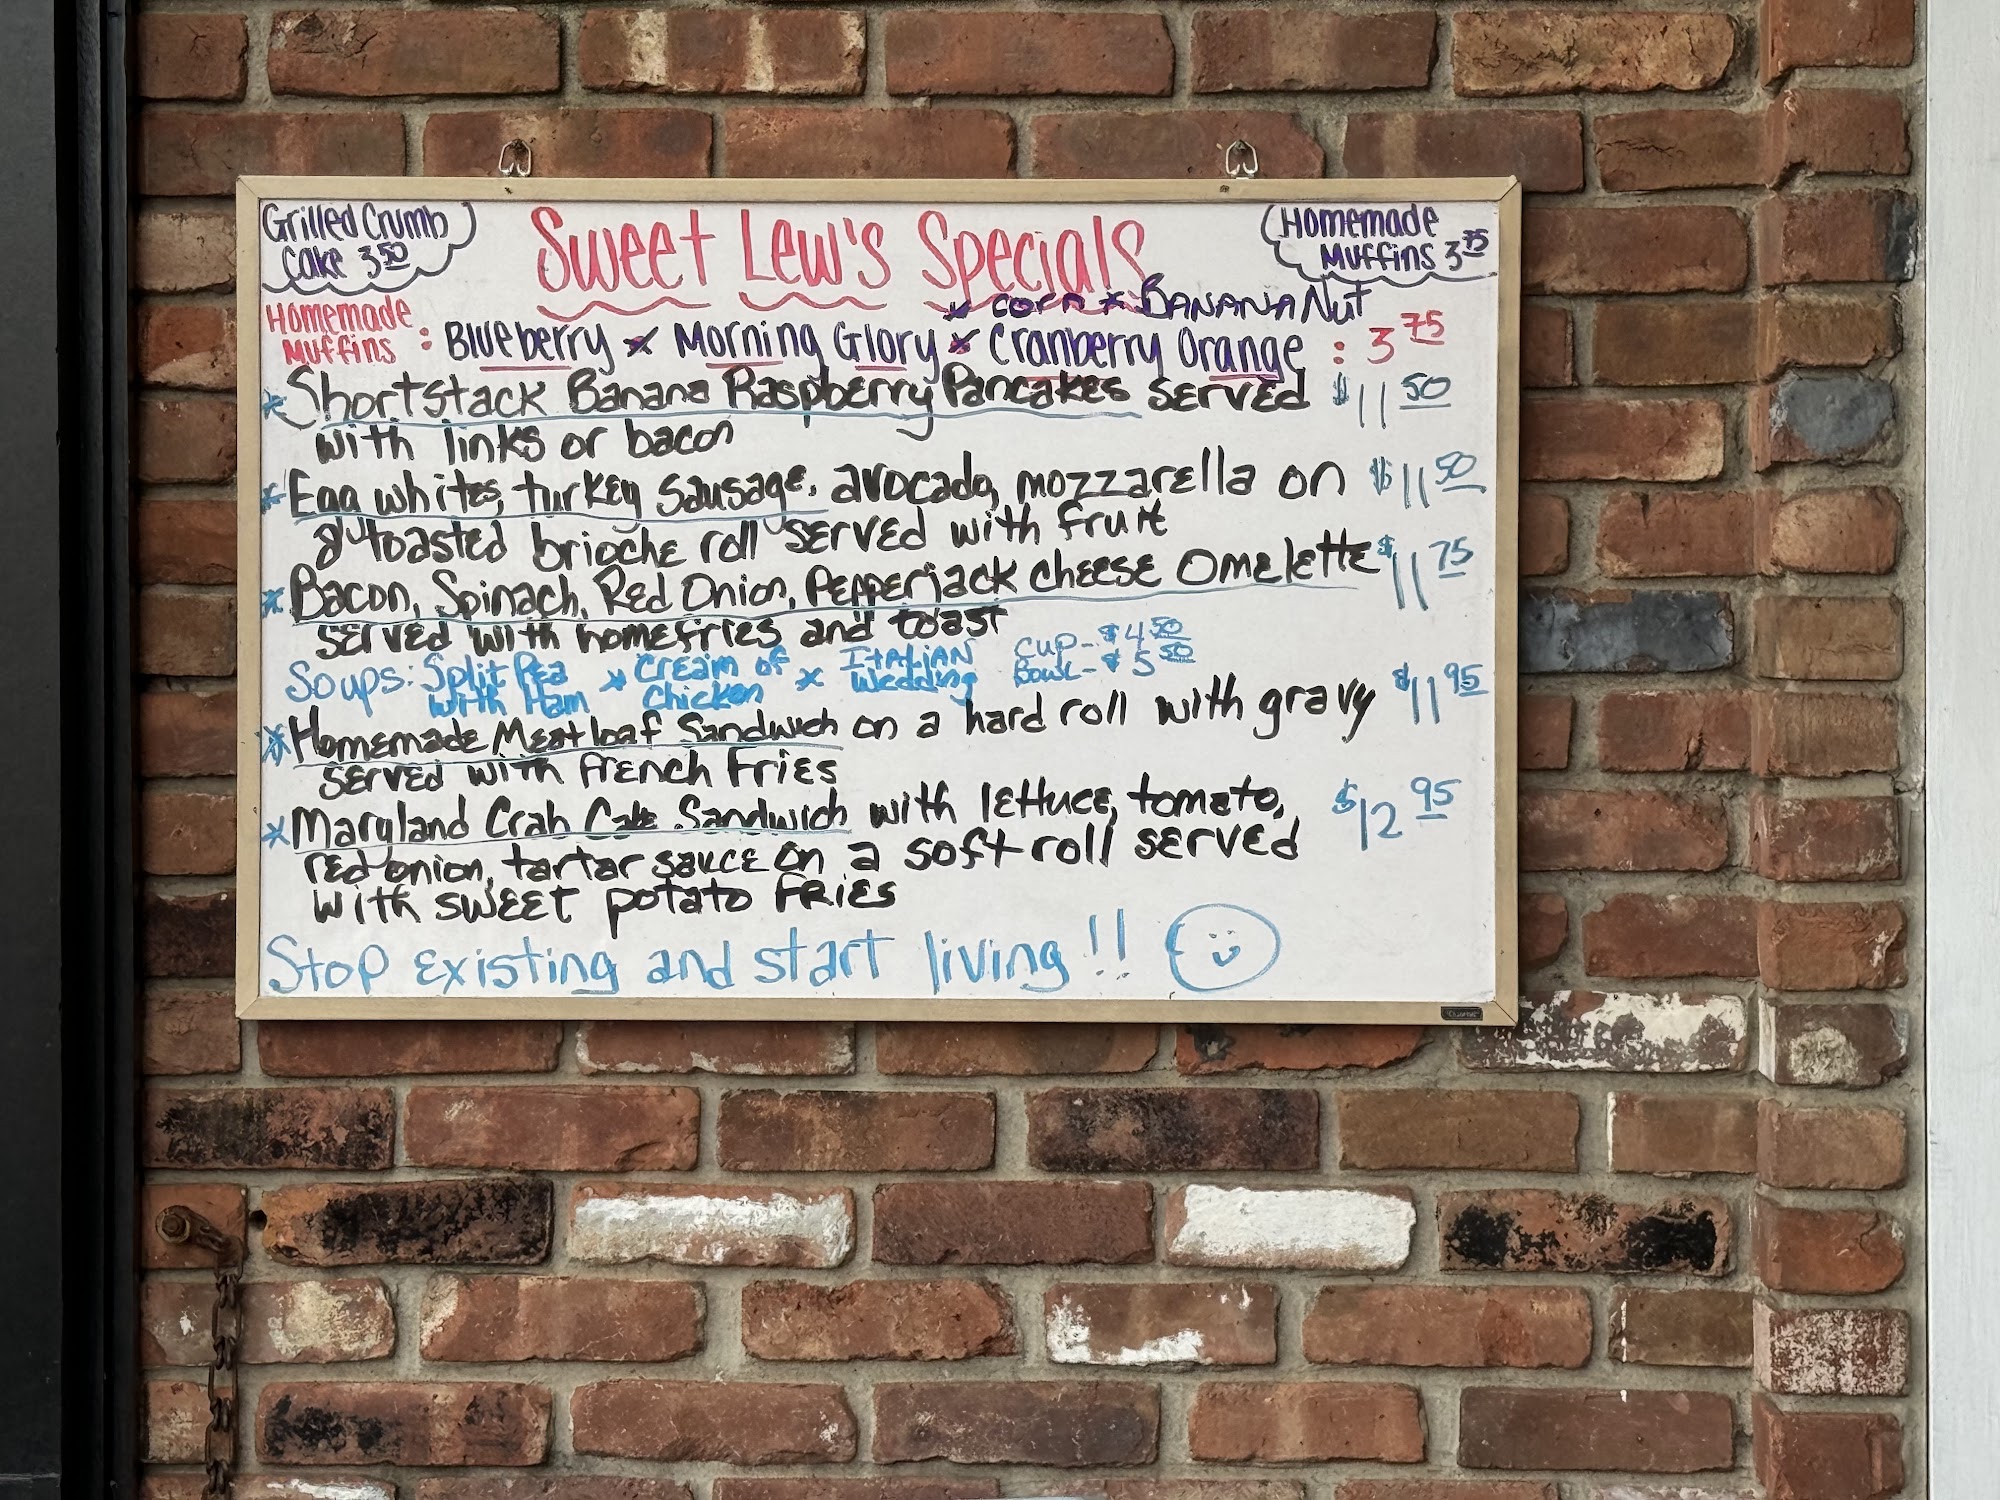 Grilled Crumb
Cake 3 50
Sweet Lew's Specials
Homemade
Muffins 3 75
* corn * Banana Nut
Homemade
Muffins : Blueberry * Morning Glory * Cranberry Orange : 3 75
* Shortstack Banana Raspberry Pancakes served $11 50
with links or bacon
* Egg whites, turkey sausage, avocado, mozzarella on $11 50
a toasted brioche roll served with fruit
* Bacon, Spinach, Red Onion, Pepperjack cheese Omelette $11 75
served with homefries and toast
Soups: Split Pea * Cream of * Italian Cup - $4 50
with Ham Chicken Wedding Bowl - $5 50
* Homemade Meatloaf Sandwich on a hard roll with gravy $11 95
served with french fries
* Maryland Crab Cake Sandwich with lettuce, tomato, $12 95
red onion, tartar sauce on a soft roll served
with sweet potato fries
Stop existing and start living!!